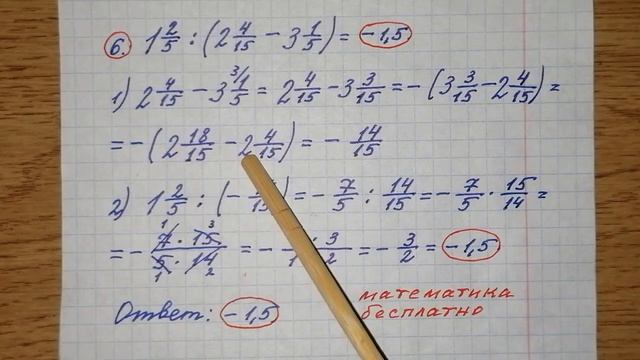 6. 1 2/5 : (2 4/15 - 3 1/5) = -1,5
1) 2 4/15 - 3 1/5 = 2 4/15 - 3 3/15 = -(3 3/15 - 2 4/15) =
= -(2 18/15 - 2 4/15) = - 14/15
2) 1 2/5 : (- /15) = - 7/5 : 14/15 = - 7/5 · 15/14 =
= - 7 · 15/5 · 14 = - · 3/1 2 = - 3/2 = -1,5
Ответ: -1,5
математика
бесплатно